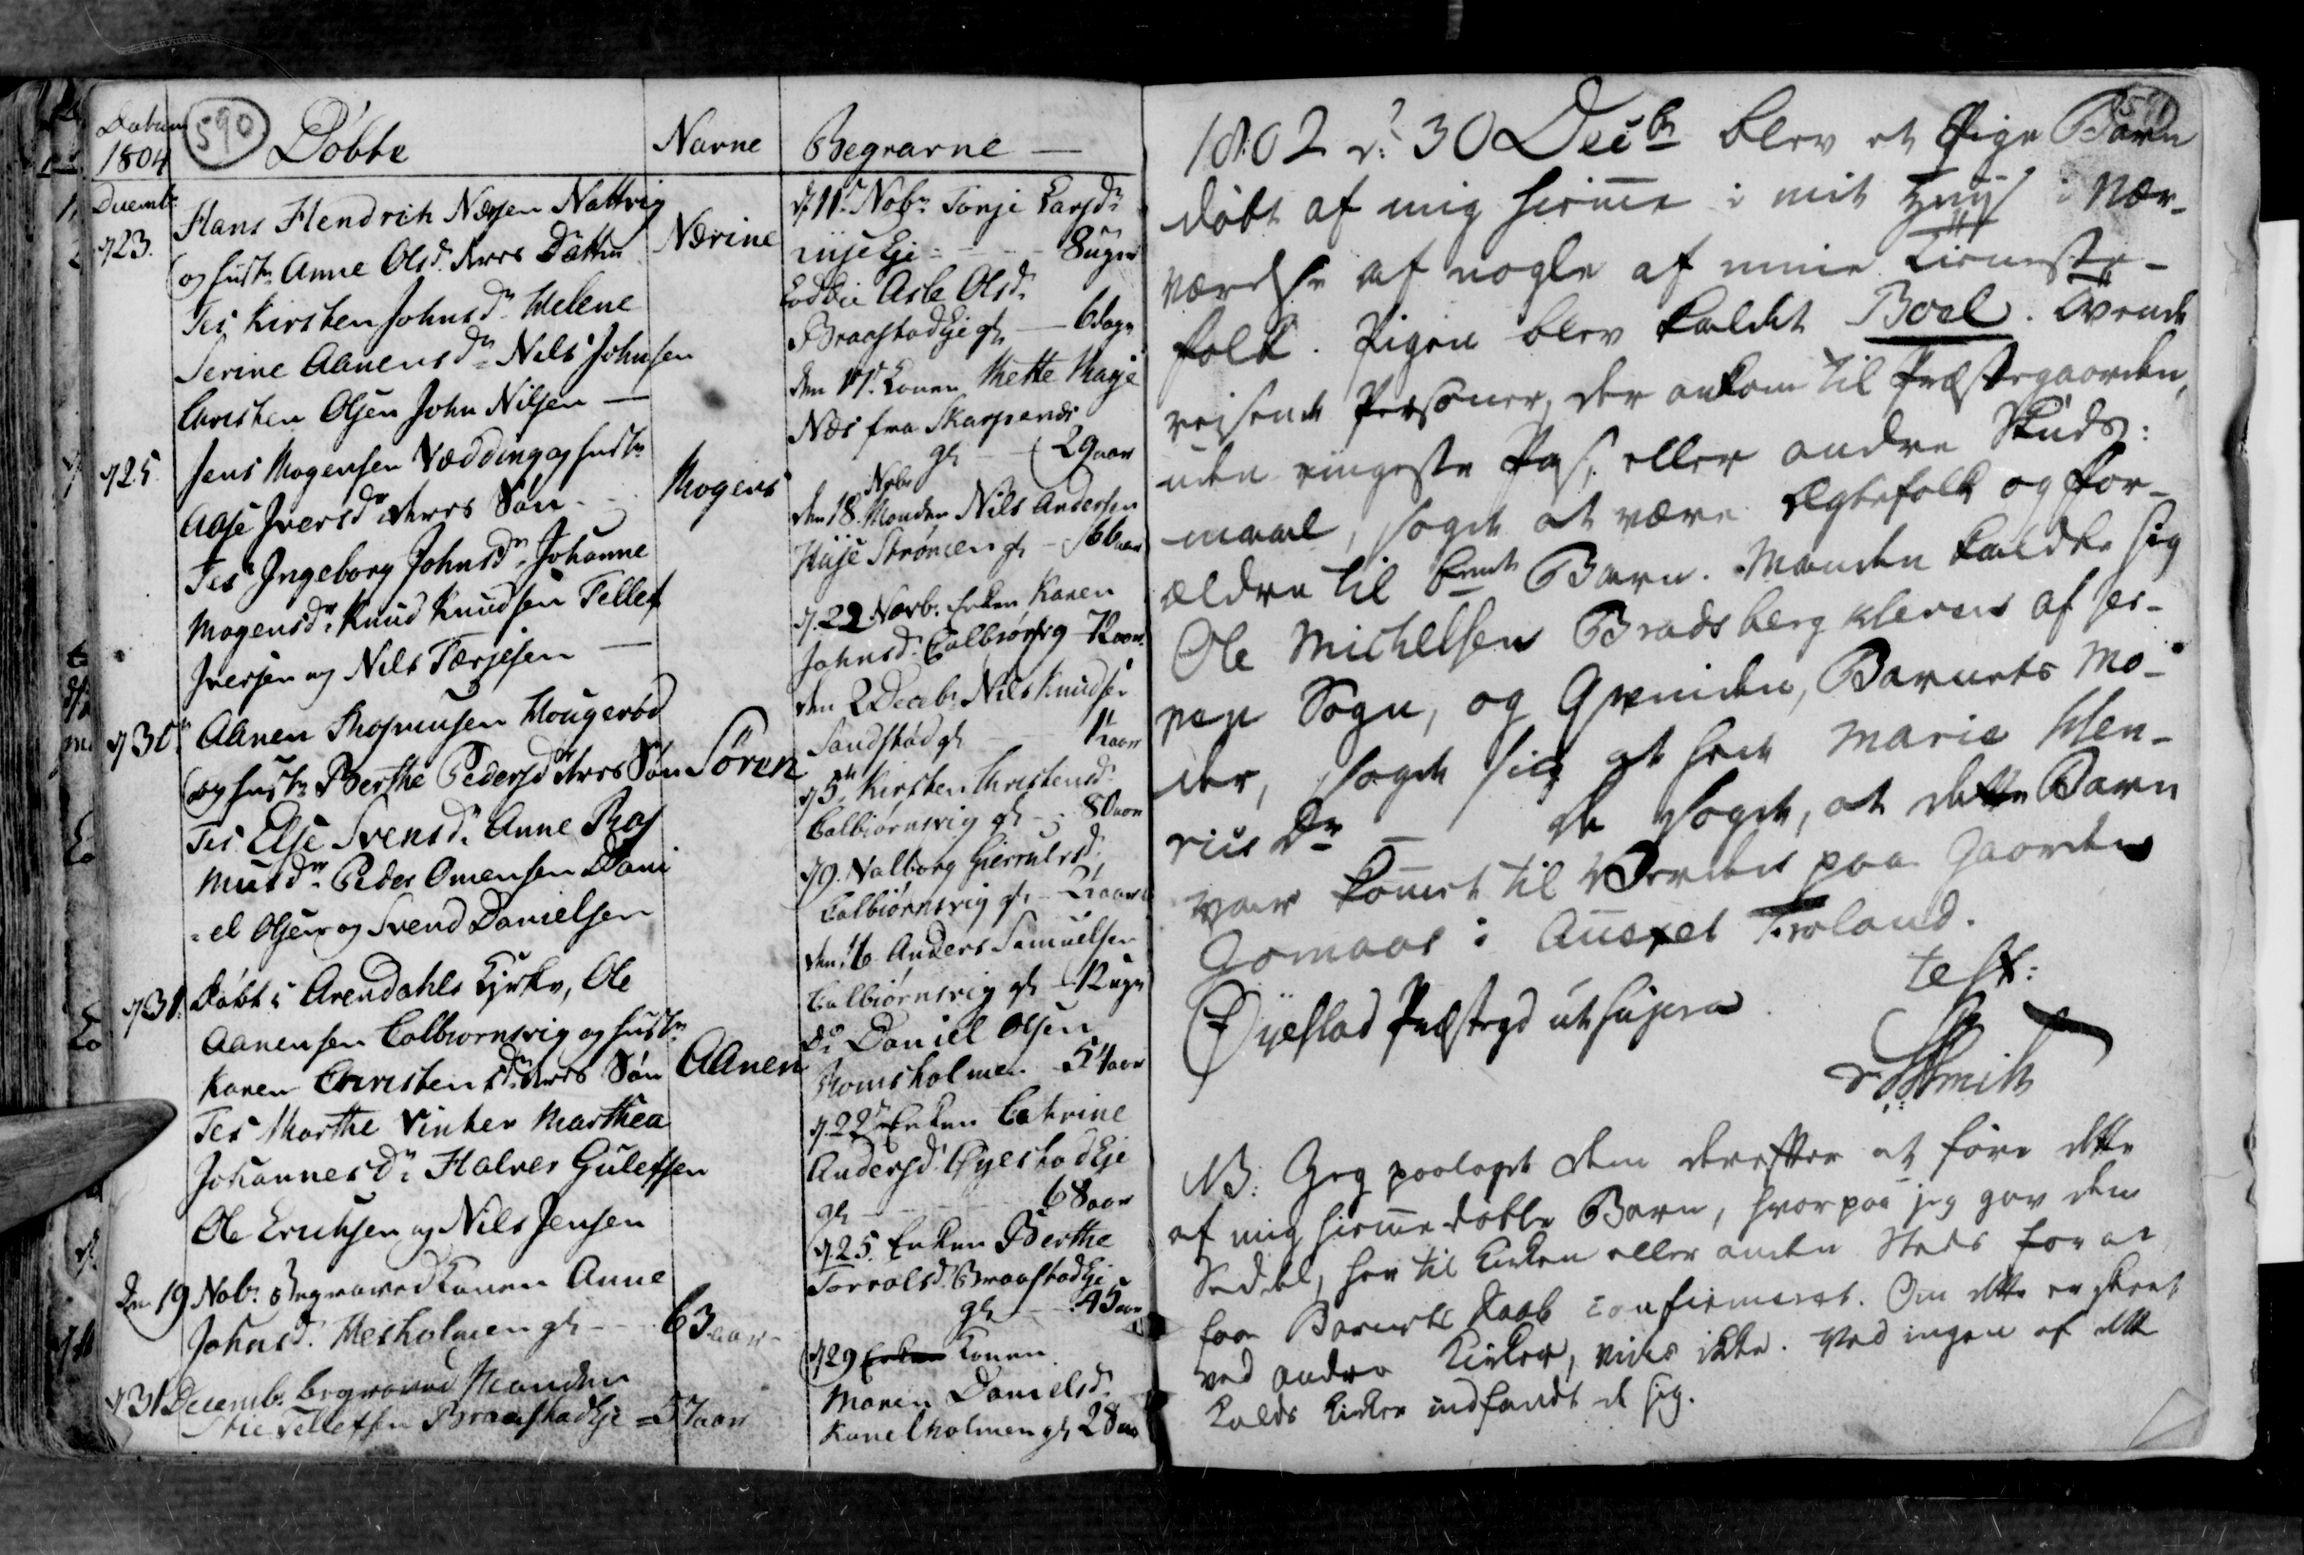 Datum
1804
590
Döbte
Navne
Begravne
Decembr
d 23.
Hans Hendrich Næsen Nattvig
og hustr Anne Olsdr deres Datter
Nærine
Tes. Kirsten Johnsdr Helene
Serine Aanensdr Nils Johnsen
Christen Olsen John Nilsen
d 25.
Jens Mogensen Vedding og hustr
Aase Iversdr deres Søn
Mogens
Tes Ingeborg Johnsdr Johanne
Mogensdr Knud Knudsen Tellef
Iversen og Nils Tærjesen
d 30
Aanen Rasmusen Hougerød
og hustr Berthe Pedersdr deres Søn
Søren
Tes Else Svensdr Anne Ras
musdr Peder Omensen Dani
-el Olsen og Svend Danielsen
d 31.
Døbt i Arendahls Kjirke, Ole
Aanensen Colbiørnsvig og hustr
Karen Christensdr deres Søn
Aanen
Tes Marthe Vinter Marthea
Johannesdr Halver Gulefsen
Ole Erichsen og Nils Jensen
Den 19 Nobr. begraved Konen Anne
Johnsdr. Hesholmen gl 63 aar
d 31 Decembr. begraved Manden
Stie Tellefsen Braastad Eje 57 aar
d 11. Nobr Tonje Larsdr
Eje 8 uger
Asle Olsdr
Braastad Eje gl 6 dage
den 17. Konen Mette Marje
Næs fra Skarpenæs
gl 29 aar
Nobr
den 18. Manden Nils Andersen
Strømen gl 66 aar
d. 22 Novbr. Enken Karen
Johnsd. Colbiørnsvig 72 aar
den 2 Decbr. Nils Knudsen
Sandstød gl aar
d 5 Kirsten Christensd.
Colbiørnsvig gl 80 aar
d 9. Valborg Gierulvsd.
Colbiørnsvig gl aar
den 16 Anders Samuelsen
Colbiørnsvig gl 12 uger
Do Daniel Olsen
Romsholmen 54 aar
d. 22 Enken Catrine
Andersd. Øyestad Eje
gl 68 aar
d 25. Enken Berthe
Torvalsd. Braastad Eje
gl 45 aar
d 29 Konen
Maren Danielsd.
Kanelholmen gl 28 aar
1802 d: 30 Decbr blev et Pige Barn
døbt af mig hiemme i mit Huus i Nær-
værelse af nogle af mine Tieneste-
folk. Pigen blev kaldet Boel. Vende
rejsende Personer, der ankom til Præstegaarden,
uden ringeste Pas, eller andre Skuds:
maal, sagde at være Ægtefolk og For-
ældre til bemte Barn. Manden kaldte sig
Ole Michelsen Bradsberg Kleven af Hes-
næs Sogn, og Qvinden, Barnets Mo-
der, sagde sig at hede Marie Hen-
ricsdr - De sagde, at dette Barn
var kommet til Verden paa Gaarden
Gomaas i Froland.
Test:
Øyestad Præstegd ut supra
Smith
NB: Jeg paalagde dem derefter at føre dette
af mig hiemmedøbte Barn, hvorpaa jeg gav dem
Seddel, her til Kirken eller andre Steder for at
faae Barnets Daab confirmeret. Om dette er skeet
ved andre Kirker, vides ikke. Ved ingen af dette
Kalds Kirker indfandt de sig.